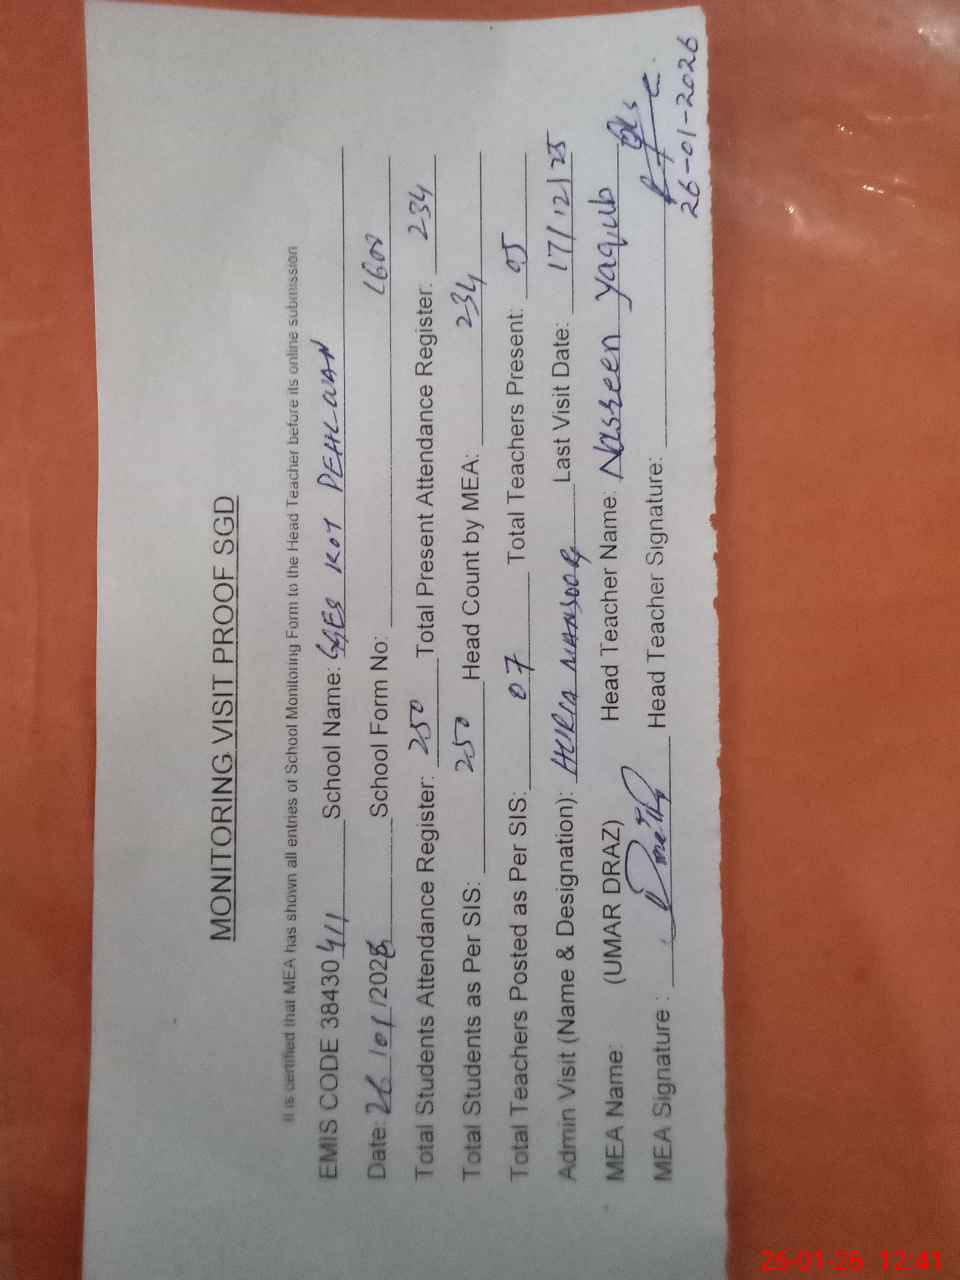 MONITORING VISIT PROOF SGD
It is certified that MEA has shown all entries of School Monitoring Form to the Head Teacher before its online submission
EMIS CODE 38430411 School Name: GGES KOT PEHLWAN
Date: 26/01/2026 School Form No:
Total Students Attendance Register: 250 Total Present Attendance Register: 234
Total Students as Per SIS: 250 Head Count by MEA: 234
Total Teachers Posted as Per SIS: 07 Total Teachers Present: 05
Admin Visit (Name & Designation): HURIA MANSOOR Last Visit Date: 17/12/25
MEA Name: (UMAR DRAZ) Head Teacher Name: Nasreen yaqub
MEA Signature : Head Teacher Signature:
26-01-2026
26-01-26 12:41